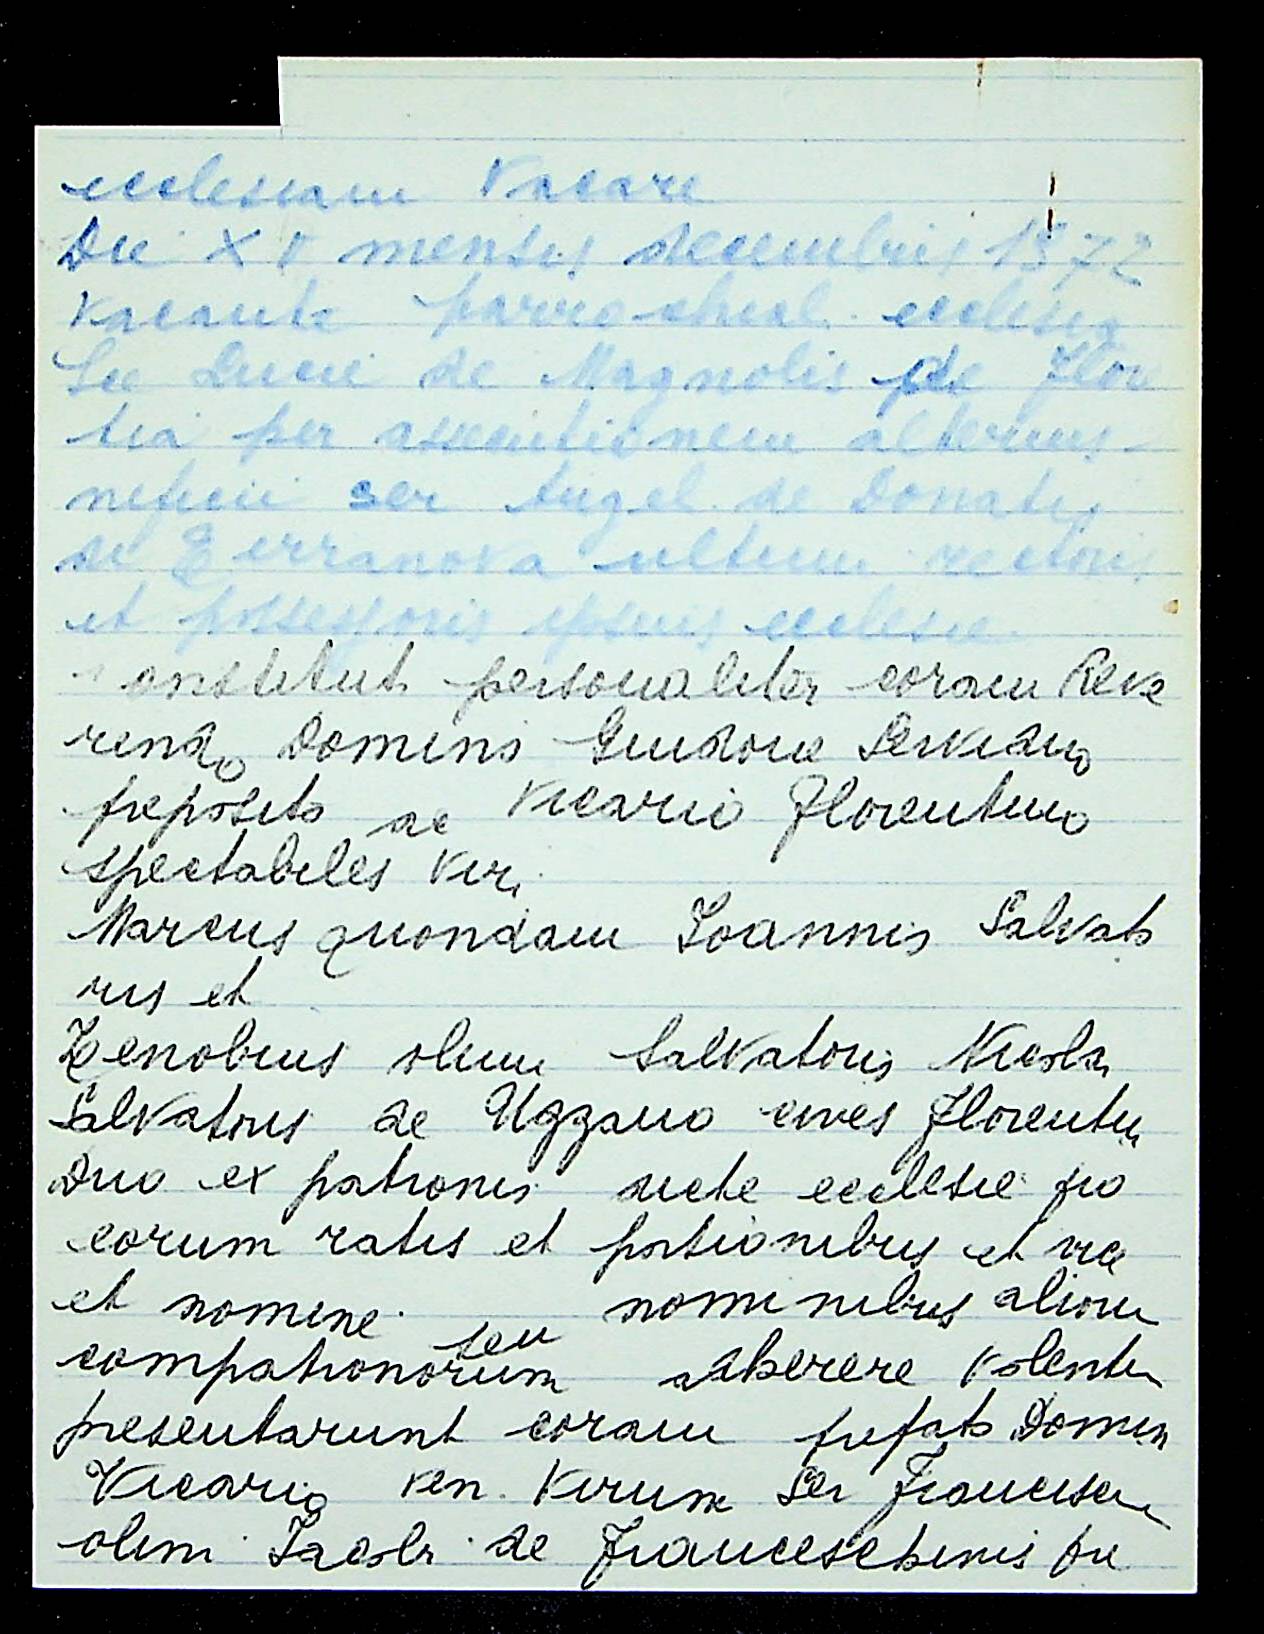 ecclesiam Vacare
Die XV mensis decembris 1572
Vacante parrochial. ecclesia
Sce Lucie de Magnolis de Floren
tia per assecutionem alterius
neficii ser Angel. de Donatis
de Terranova ultimi rectoris
et possessoris ipsius ecclesie
constituti personaliter coram Reve
rendo Domino Guidone Servidio
preposito ac Vicario Florentino
spectabiles Viri
Marcus quondam Ioannis Salvato
ris et
Zenobius olim Salvatoris Nicolai
Salvatoris de Uzzano cives Florentin
Duo ex patronis dicte ecclesie pro
eorum ratis et portionibus et vice
et nomine seu nominibus aliorum
compatronorum adherere volentium
presentarunt coram prefato Domino
Vicario Ven. Virum Ser Franciscum
olim Iacobi de Franceschinis pre